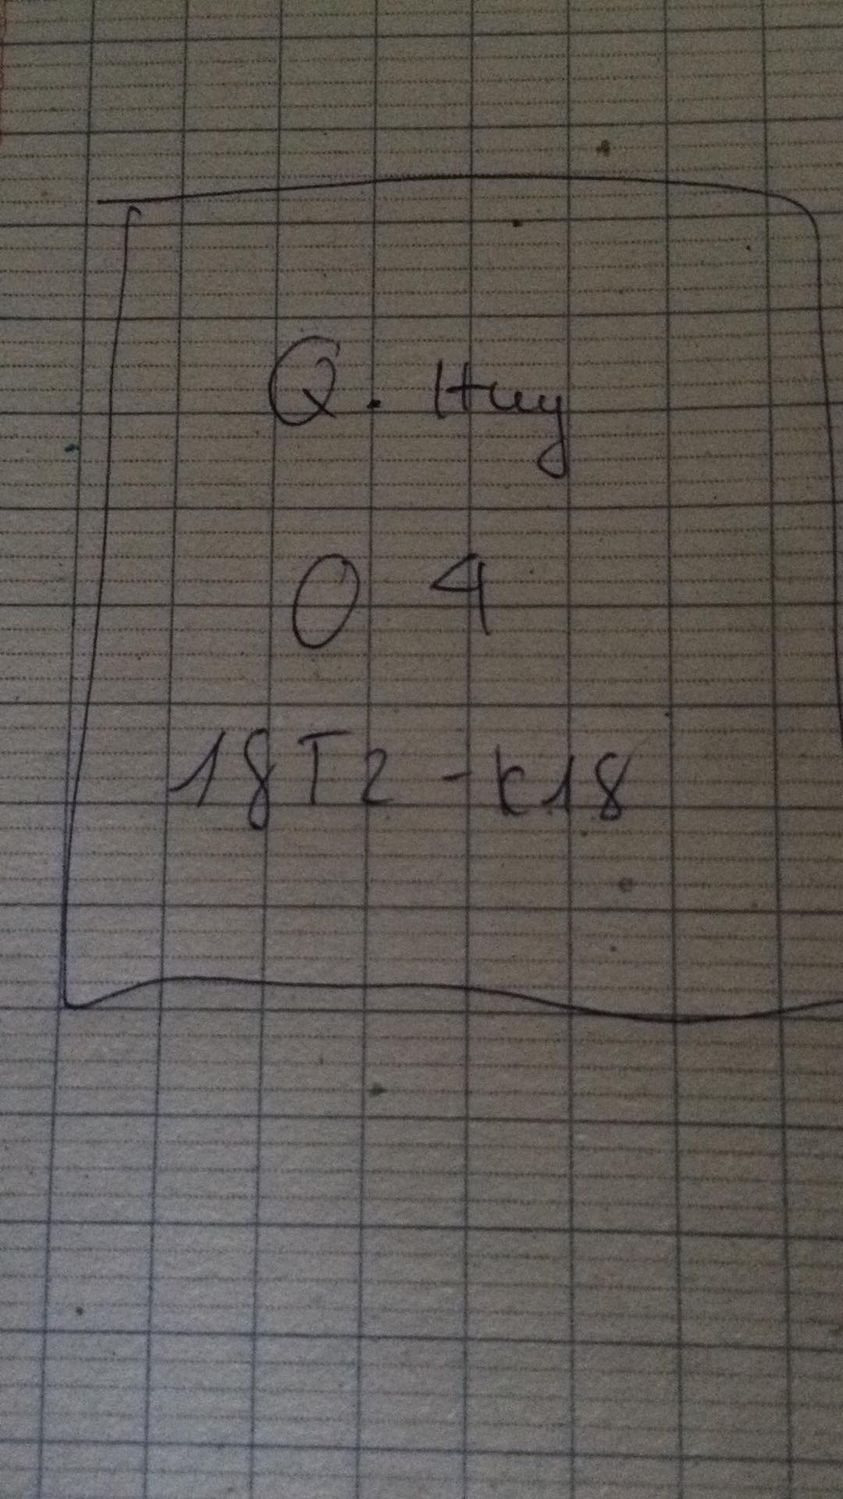 Q. Huy
04
18T2-K18